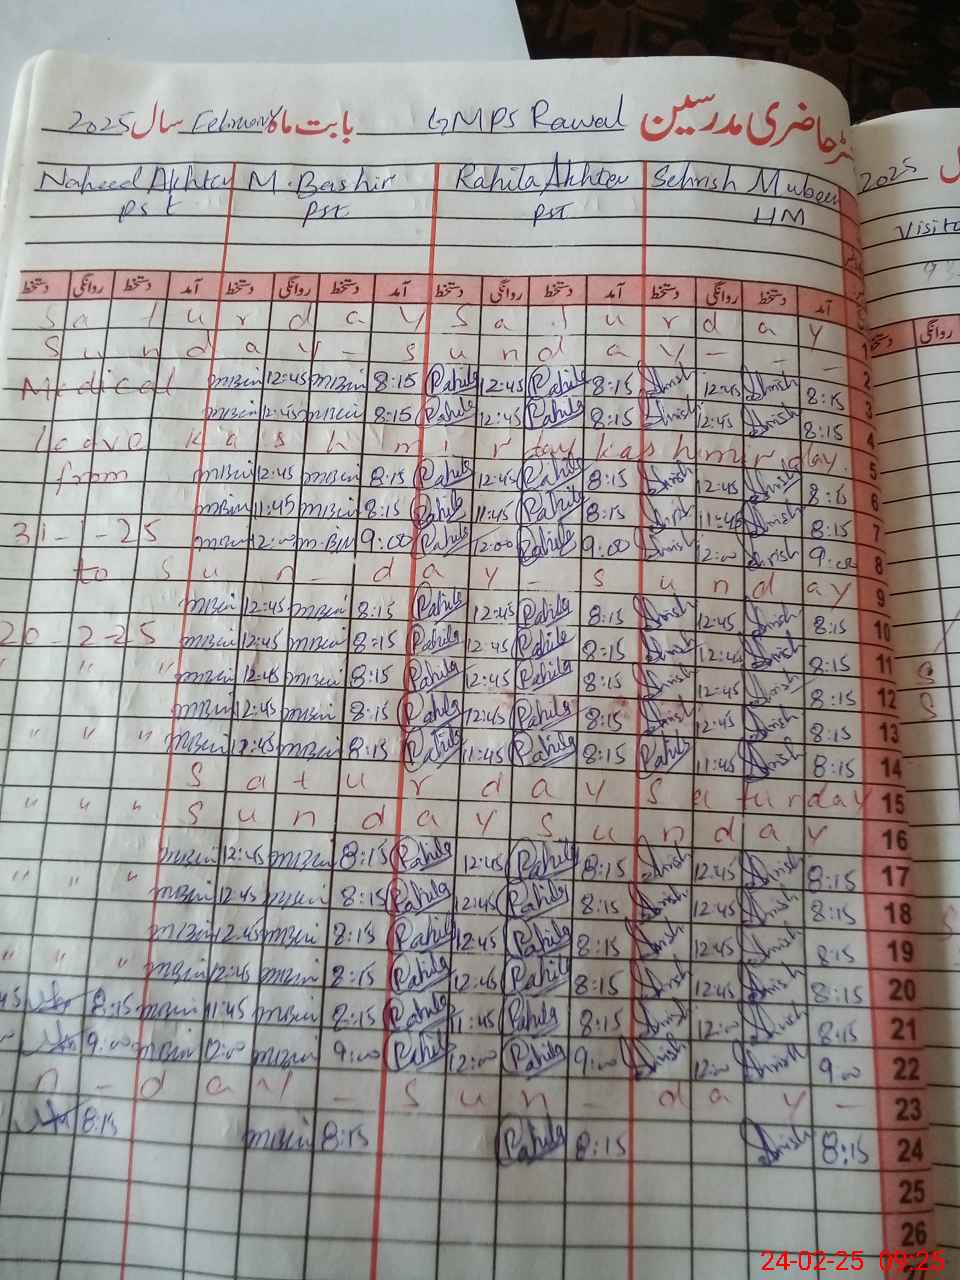 رجسٹر حاضری مدرسین GMPS Rawal بابت ماہ February سال 2025
Naheed Akhter M. Bashir Rahila Akhter Sehrish Mubeen
PST PST PST HM
دستخط روانگی دستخط آمد دستخط روانگی دستخط آمد دستخط روانگی دستخط آمد دستخط روانگی دستخط آمد
Saturday Saturday 1
Sunday - Sunday - - 2
Medical MBin 12:45 MBin 8:15 Rahila 12:45 Rahila 8:15 12:45 8:15 3
MBin 12:45 MBin 8:15 Rahila 12:45 Rahila 8:15 12:45 8:15 4
leave Kashmir day Kashmir day. 5
from MBin 12:45 MBin 8:15 Rahila 12:45 Rahila 8:15 12:45 8:15 6
MBin 11:45 MBin 8:15 Rahila 11:45 Rahila 8:15 11:45 8:15 7
31-1-25 MBin 12:00 MBin 9:00 Rahila 12:00 Rahila 9:00 12:00 9:00 8
to Sun-day - Sunday 9
MBin 12:45 MBin 8:15 Rahila 12:45 Rahila 8:15 12:45 8:15 10
20-2-25 MBin 12:45 MBin 8:15 Rahila 12:45 Rahila 8:15 12:45 8:15 11
" " " MBin 12:45 MBin 8:15 Rahila 12:45 Rahila 8:15 12:45 8:15 12
MBin 12:45 MBin 8:15 Rahila 12:45 Rahila 8:15 12:45 8:15 13
" " " MBin 11:45 MBin 8:15 Rahila 11:45 Rahila 8:15 Rahila 11:45 8:15 14
Saturday Saturday 15
" " " Sunday Sunday 16
MBin 12:45 MBin 8:15 Rahila 12:45 Rahila 8:15 12:45 8:15 17
" " " MBin 12:45 MBin 8:15 Rahila 12:45 Rahila 8:15 12:45 8:15 18
MBin 12:45 MBin 8:15 Rahila 12:45 Rahila 8:15 12:45 8:15 19
" " " MBin 12:45 MBin 8:15 Rahila 12:45 Rahila 8:15 12:45 8:15 20
8:15 MBin 11:45 MBin 8:15 Rahila 11:45 Rahila 8:15 12:00 8:15 21
9:00 MBin 12:00 MBin 9:00 Rahila 12:00 Rahila 9:00 12:00 9:00 22
n - day - Sun - day - 23
8:15 MBin 8:15 Rahila 8:15 8:15 24
25
26
2025
Visit
روانگی
24-02-25 09:25